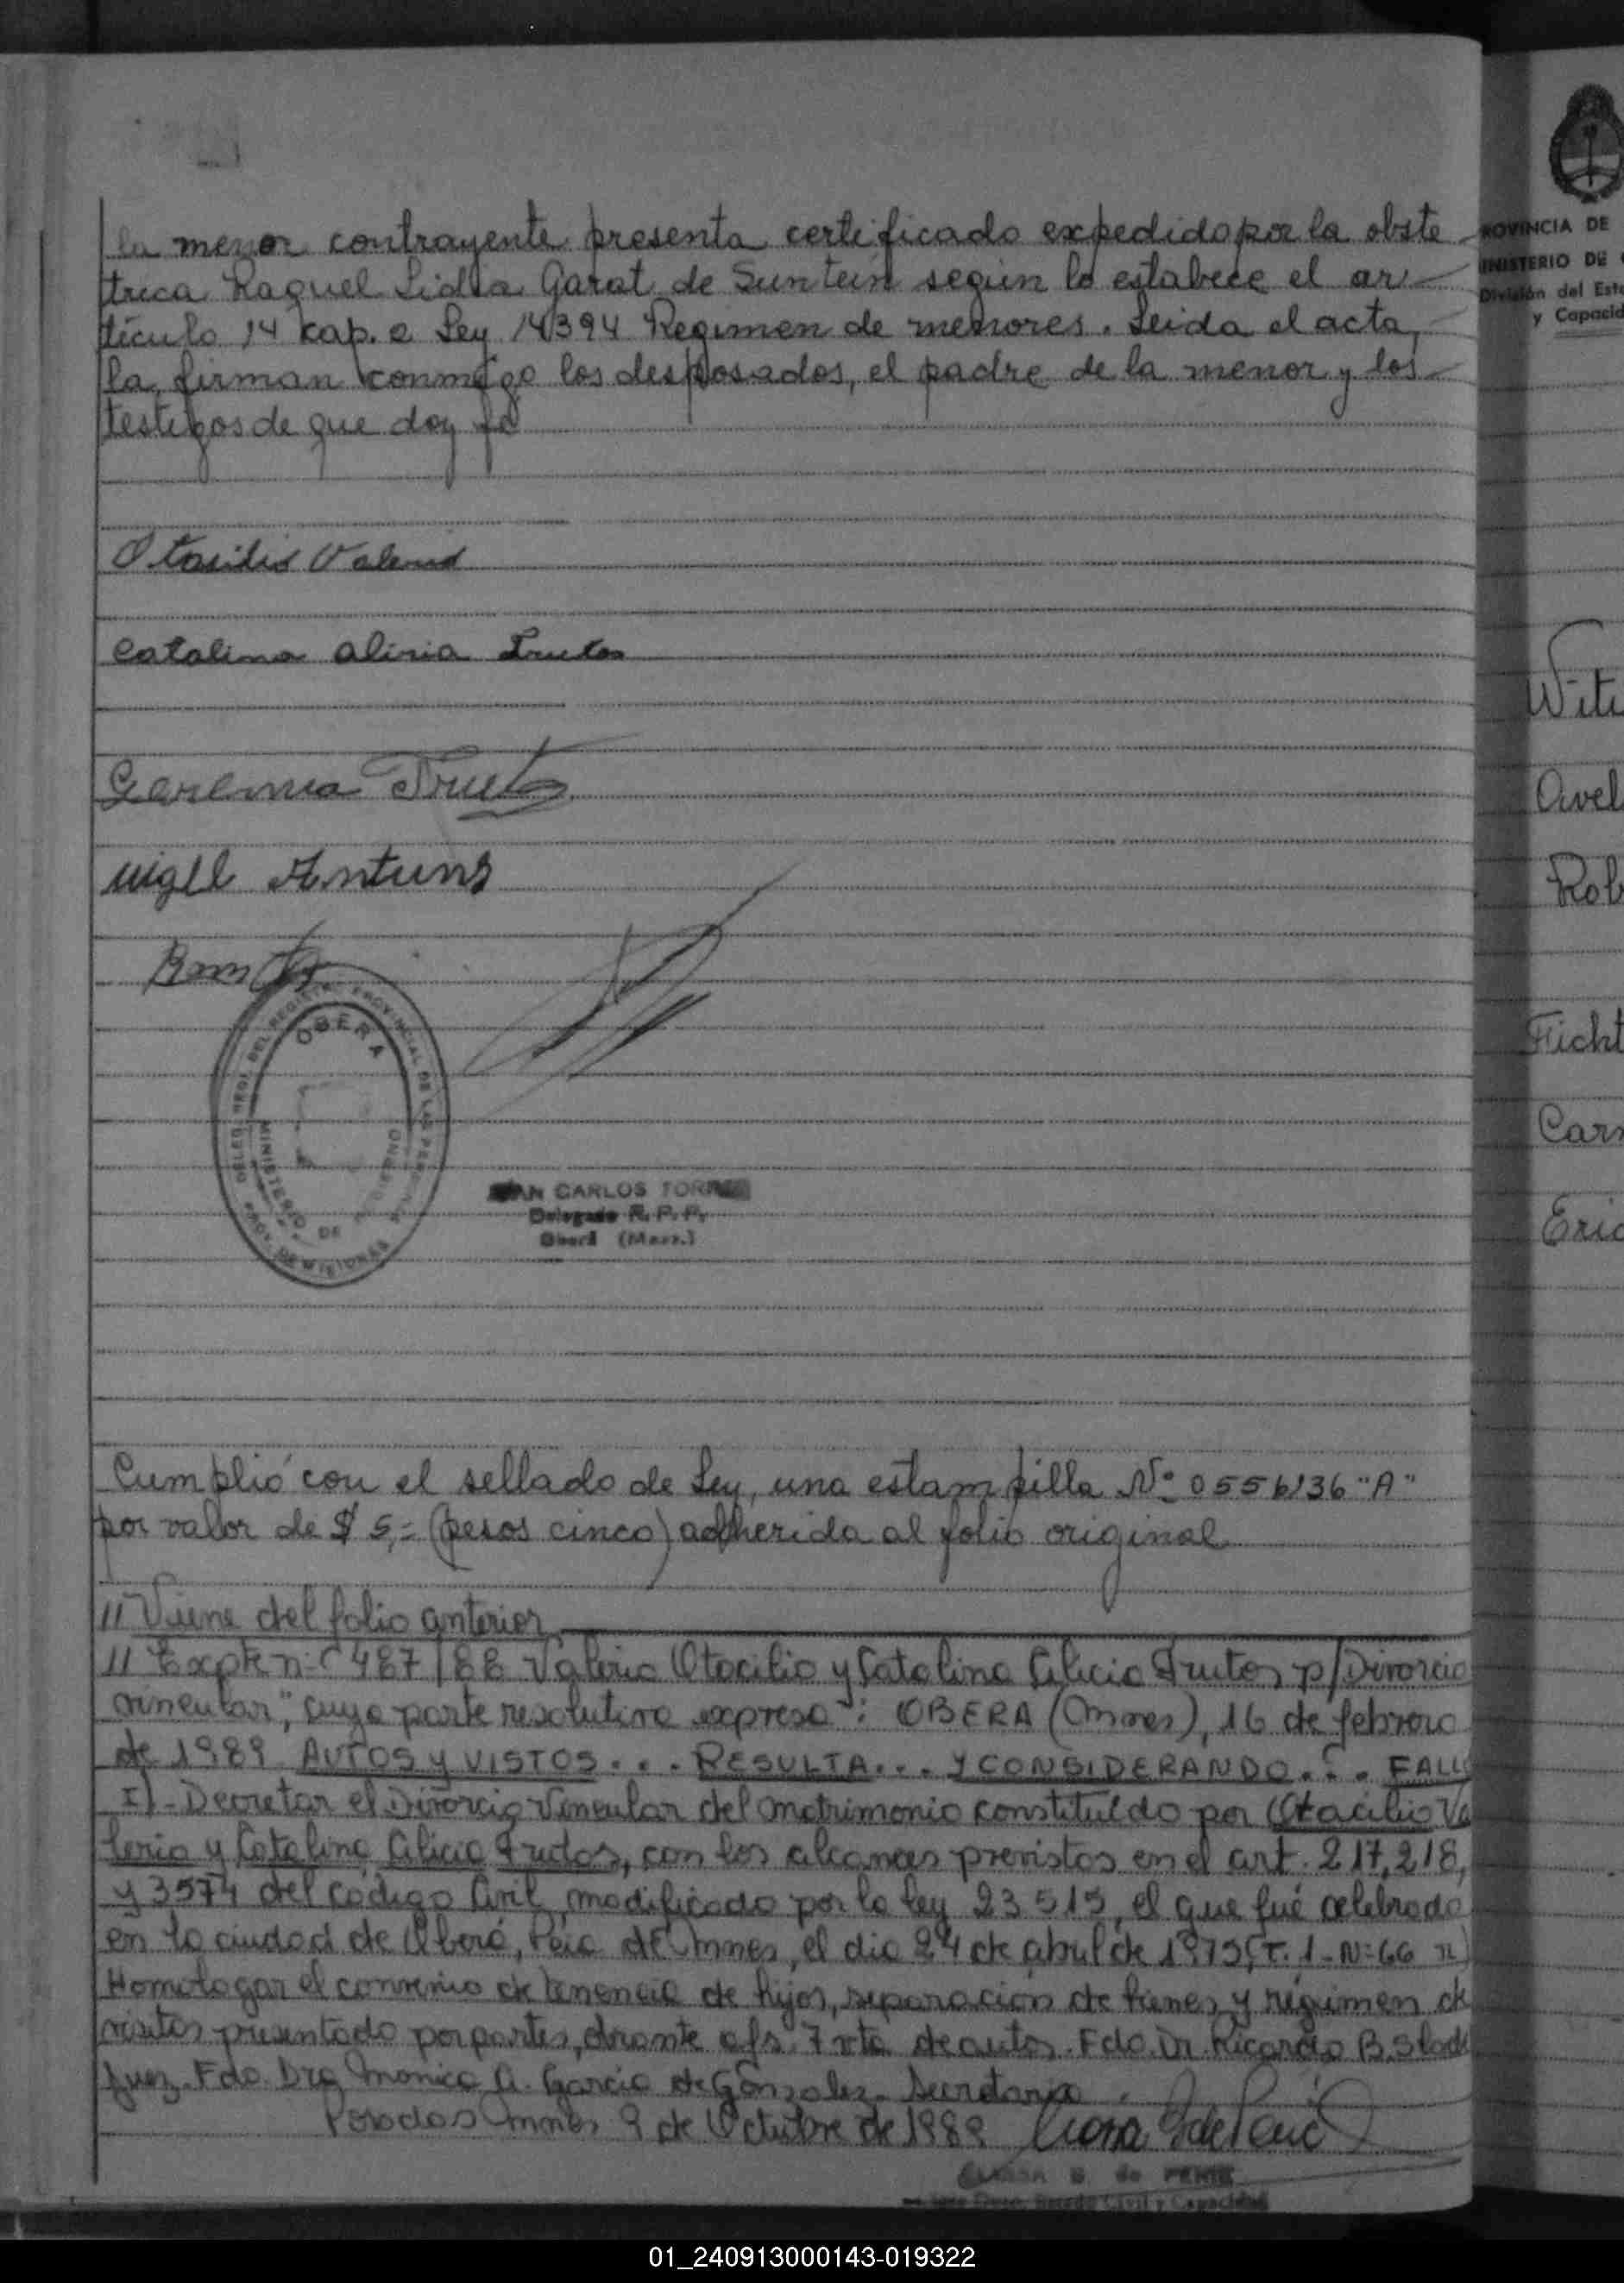 la menor contrayente presenta certificado expedido por la obste
trica Raquel Lidia Garat de Suntein según lo estabece el ar
tículo 14 cap. a Ley 14394 Regimen de menores. Leida el acta,
la firman conmigo los desposados, el padre de la menor y los
testigos de que doy fé
Otacilio Valerio
Catalina Alicia Frutos
Geremia Frutos
Antunes
DELEG. REGL. DEL REGISTRO PROVINCIAL DE LAS PERSONAS
OBERA
MINISTERIO DE GOBIERNO
PROV. DE MISIONES
JUAN CARLOS TORRES
Delegado R.P.P.
Oberá (Mnes.)
Cumplió con el sellado de Ley, una estampilla Nº 0556136 "A"
por valor de $ 5,= (pesos cinco) adherida al folio original
// Viene del folio anterior
// Expte nº 487/88 Valerio Otacilio y Catalina Alicia Frutos p/Divorcio
vincular", cuya parte resolutiva expresa": OBERA (Mnes), 16 de febrero
de 1989 AUTOS y VISTOS... RESULTA... y CONSIDERANDO... FALLO
I)- Decretar el Divorcio Vincular del matrimonio constituído por Otacilio Va
lerio y Catalina Alicia Frutos, con los alcances previstos en el art. 217, 218,
y 3574 del Código Civil, modificado por la ley 23515, el que fué celebrado
en la ciudad de Oberá, Pcia de Mnes, el dia 24 de abril de 1975 (T. 1 - Nº 66
Homologar el convenio de tenencia de hijos, separación de bienes y régimen de
visitas presentado por partes, obrante a fs. 7 vta de autos. Fdo. Dr. Ricardo B.
Juez. Fdo. Dra Monica A. Garcia de Gonzalez. Secretaria.
Posadas Mnes 9 de Octubre de 1989
de
Civil y Capacidad
PROVINCIA DE
MINISTERIO DE
División del Esta
y Capacid
Wit
Avel
Rob
Ficht
Car
Eri
01_240913000143-019322